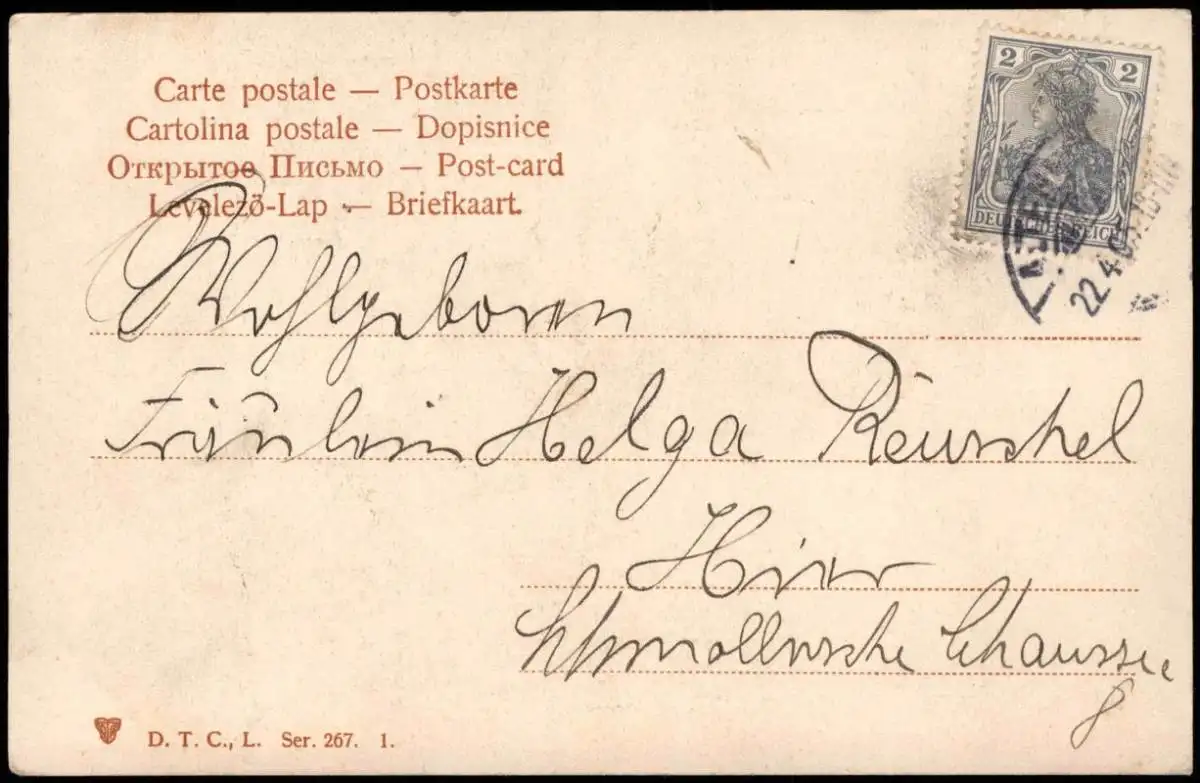 Carte postale — Postkarte
Cartolina postale — Dopisnice
Открытое Письмо — Post-card
Levelező-Lap — Briefkaart.
2 2
DEUTSCHES REICH
22.4.
Wohlgeboren
Fräulein Helga Reuschel
Hier
Schmöllnsche Chaussee
8
D. T. C., L. Ser. 267. 1.